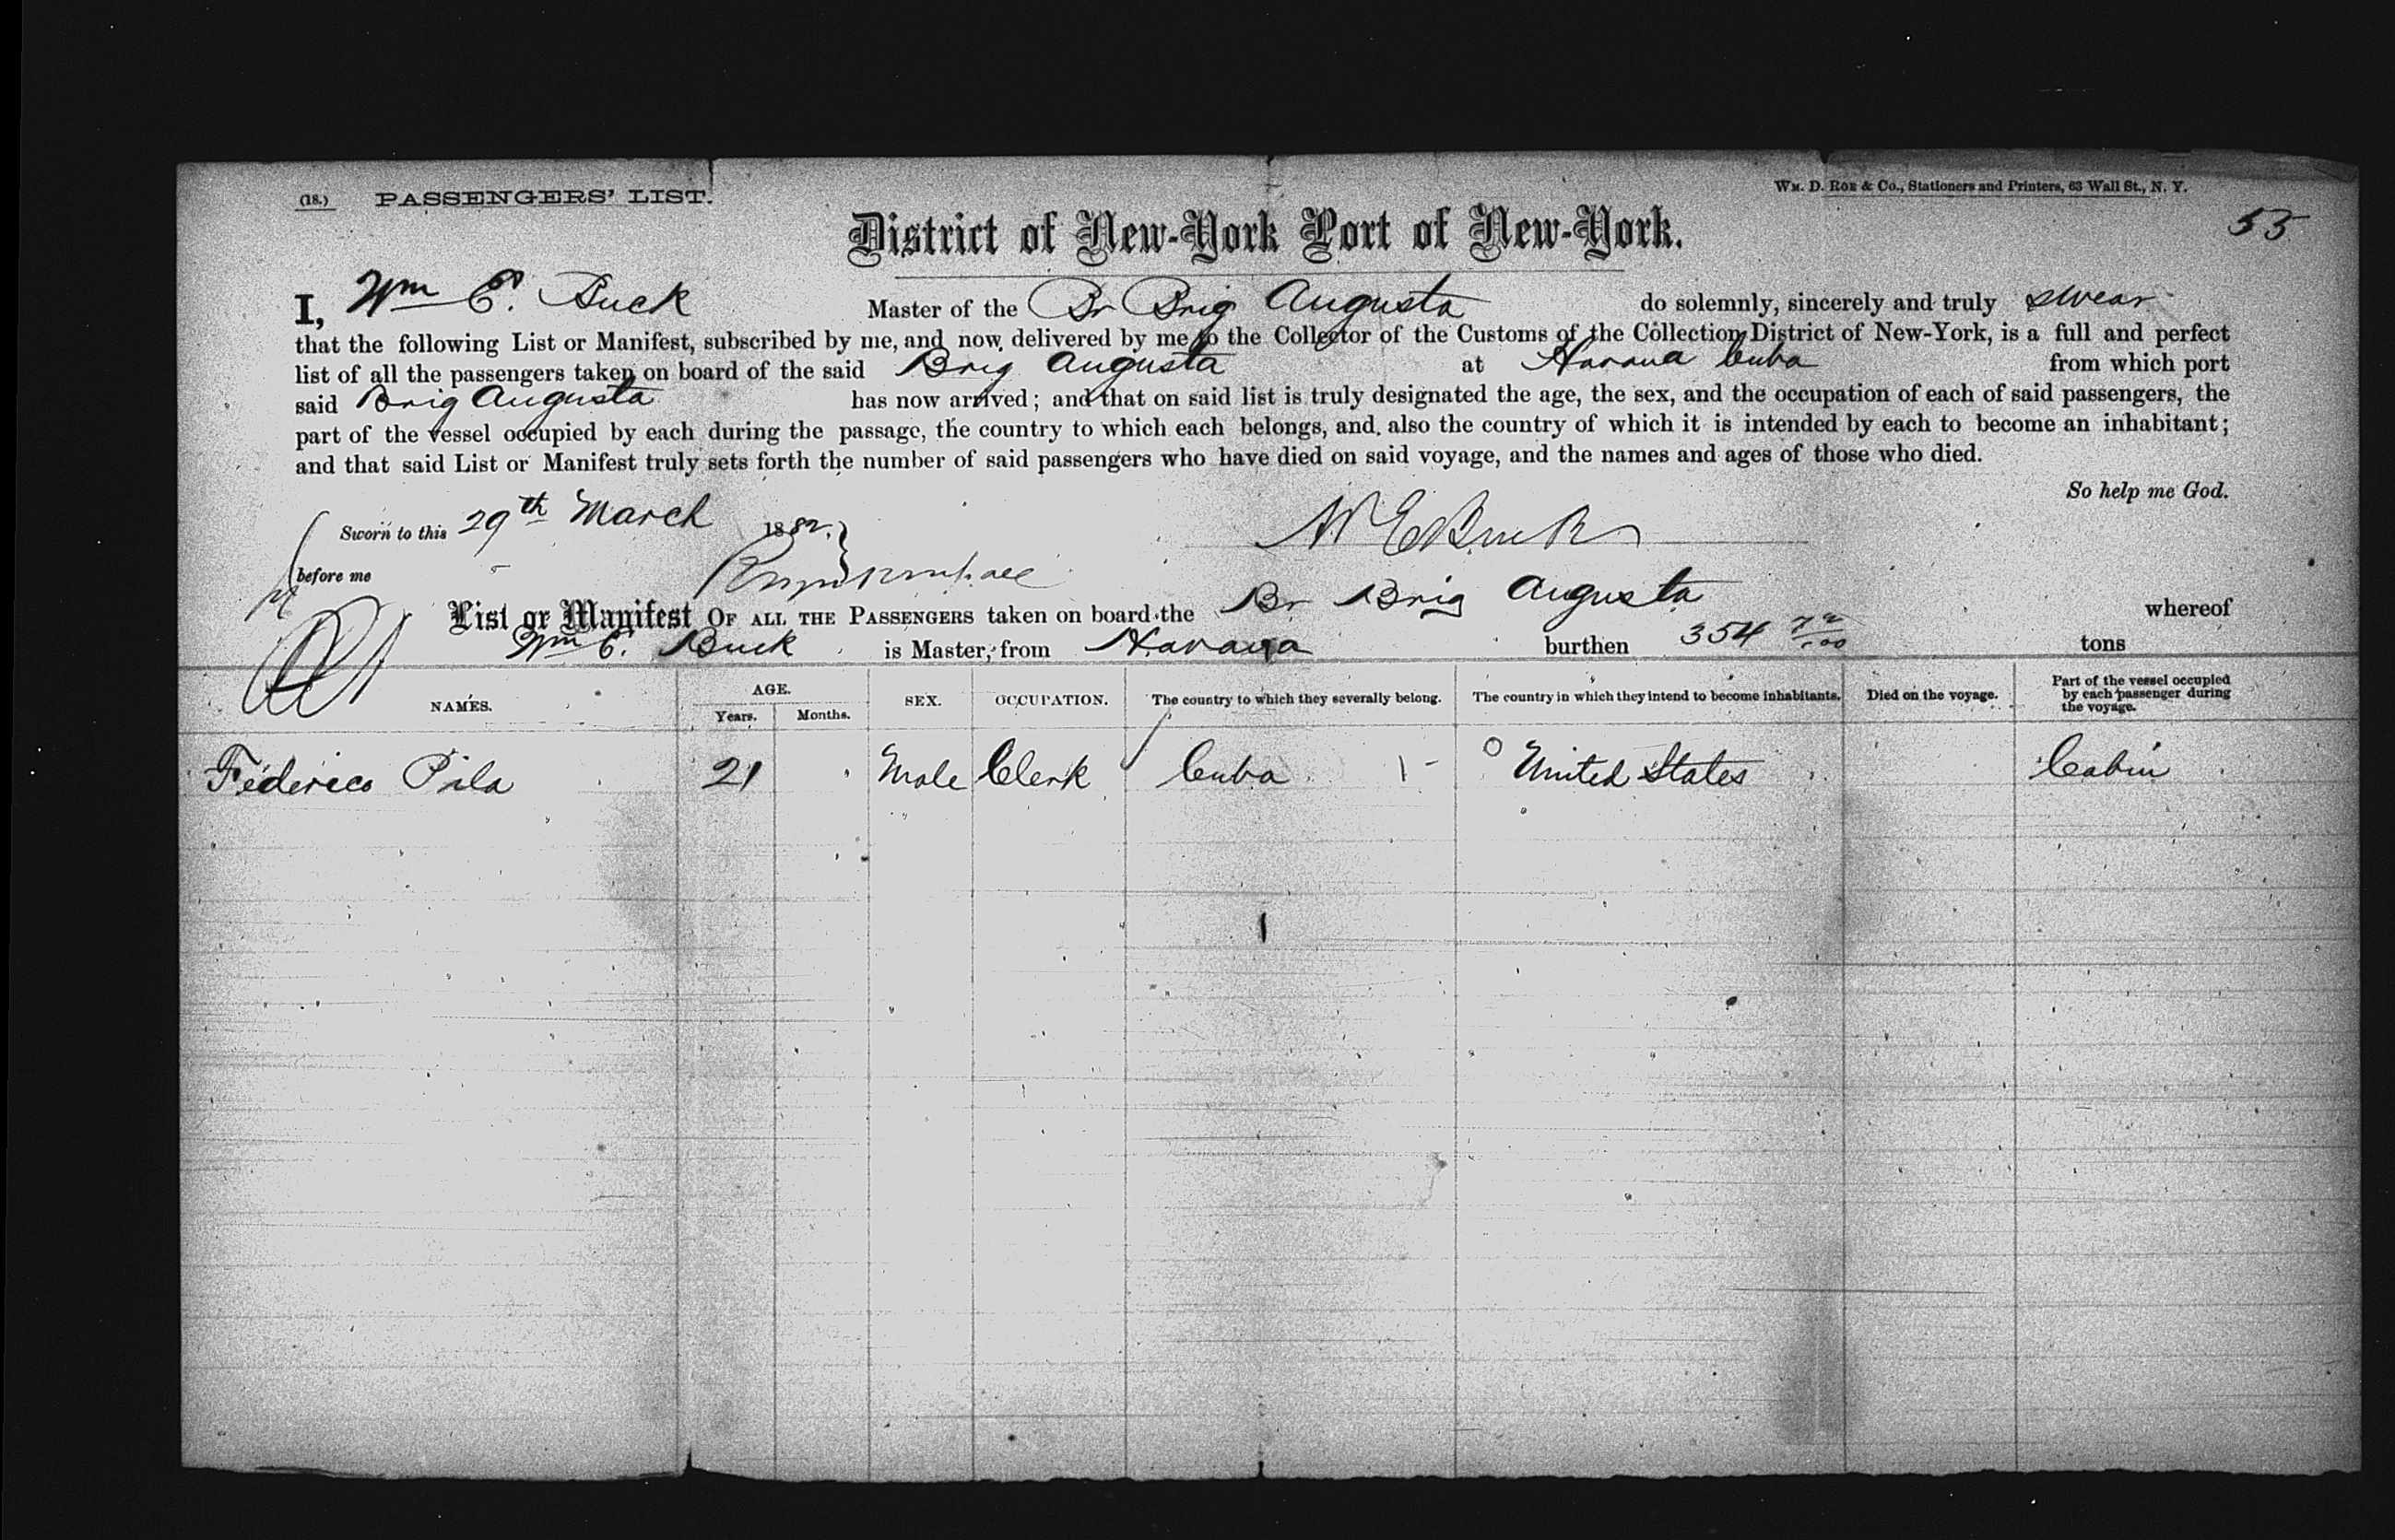 (18.) PASSENGERS' LIST.
WM. D. ROE & Co., Stationers and Printers, 63 Wall St., N. Y.
53
District of New-York Port of New-York.
I, Wm E. Buck Master of the Br Brig Augusta do solemnly, sincerely and truly swear
that the following List or Manifest, subscribed by me, and now delivered by me to the Collector of the Customs of the Collection District of New-York, is a full and perfect
list of all the passengers taken on board of the said Brig Augusta at Havana Cuba from which port
said Brig Augusta has now arrived; and that on said list is truly designated the age, the sex, and the occupation of each of said passengers, the
part of the vessel occupied by each during the passage, the country to which each belongs, and also the country of which it is intended by each to become an inhabitant;
and that said List or Manifest truly sets forth the number of said passengers who have died on said voyage, and the names and ages of those who died.
So help me God.
Sworn to this 29th March 1882,
W E Buck
before me
List or Manifest OF ALL THE PASSENGERS taken on board the Br Brig Augusta whereof
Wm E. Buck is Master, from Havana burthen 354 72/100 tons
NAMES. AGE. Years. Months. SEX. OCCUPATION. The country to which they severally belong. The country in which they intend to become inhabitants. Died on the voyage. Part of the vessel occupied by each passenger during the voyage.
Federico Pila 21 Male Clerk Cuba 1 - United States Cabin
1